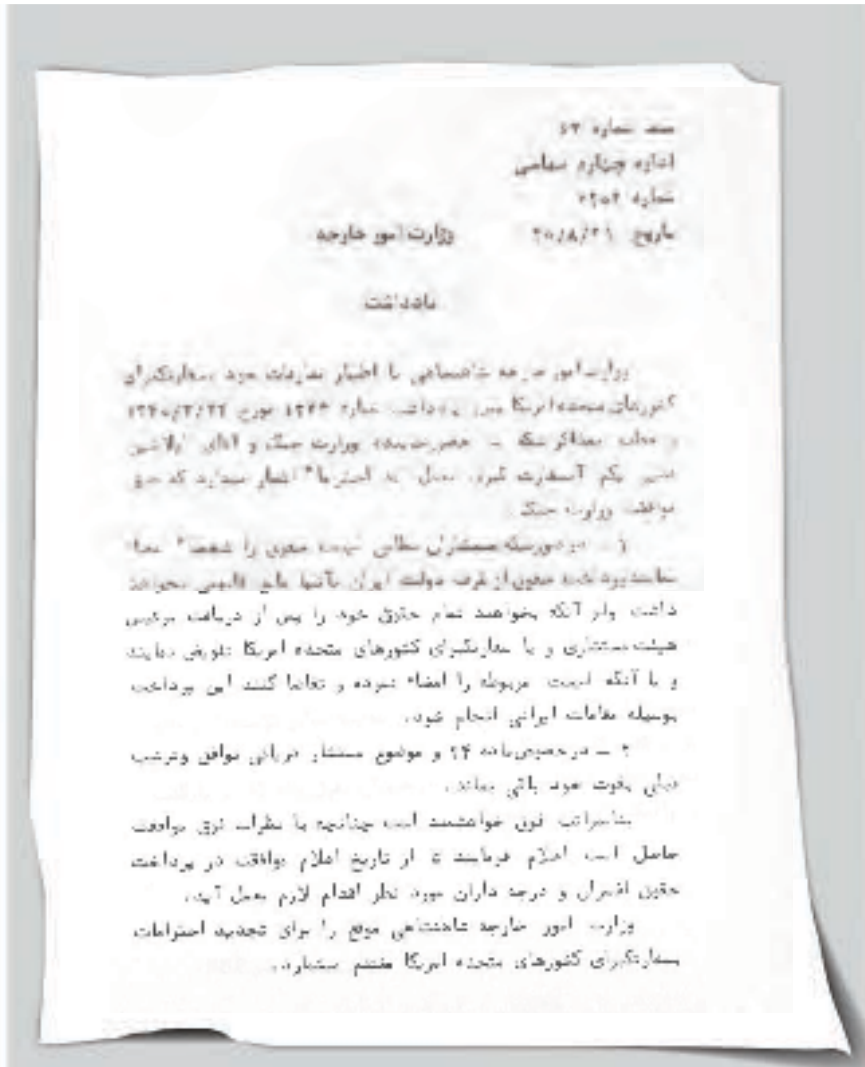 سند شماره ۶۳
اداره چهارم سیاسی
شماره
تاریخ وزارت امور خارجه
یادداشت
وزارت امور خارجه شاهنشاهی با اظهار تعارفات خود بسفارتکبرای
کشورهای متحده امریکا یادداشت شماره مورخ ۱۳۴۰/۳/۲۲
و آقای
سفارت کبری احتراما" اشعار میدارد که
موافقت وزارت جنگ
۱ ـ درصورتیکه مستشاران نظامی لیست حقوق را شخصا" امضاء
نمایند پرداخت حقوق از طرف دولت ایران بآنها مانع قانونی نخواهد
داشت ولو آنکه بخواهند تمام حقوق خود را پس از دریافت برئیس
هیئت مستشاری و یا سفارتکبرای کشورهای متحده امریکا تفویض نمایند
و یا آنکه لیست مربوطه را امضاء نموده و تقاضا کنند این پرداخت
بوسیله مقامات ایرانی انجام شود.
۲ ـ درخصوص ماده ۲۴ و موضوع مستشار دریائی توافق وترتیب
قبلی بقوت خود باقی بماند.
بنابمراتب فوق خواهشمند است چنانچه با نظرات فوق موافقت
حاصل است اعلام فرمایند تا از تاریخ اعلام موافقت در پرداخت
حقوق افسران و درجه داران مورد نظر اقدام لازم بعمل آید.
وزارت امور خارجه شاهنشاهی موقع را برای تجدید احترامات
بسفارتکبرای کشورهای متحده امریکا مغتنم میشمارد.